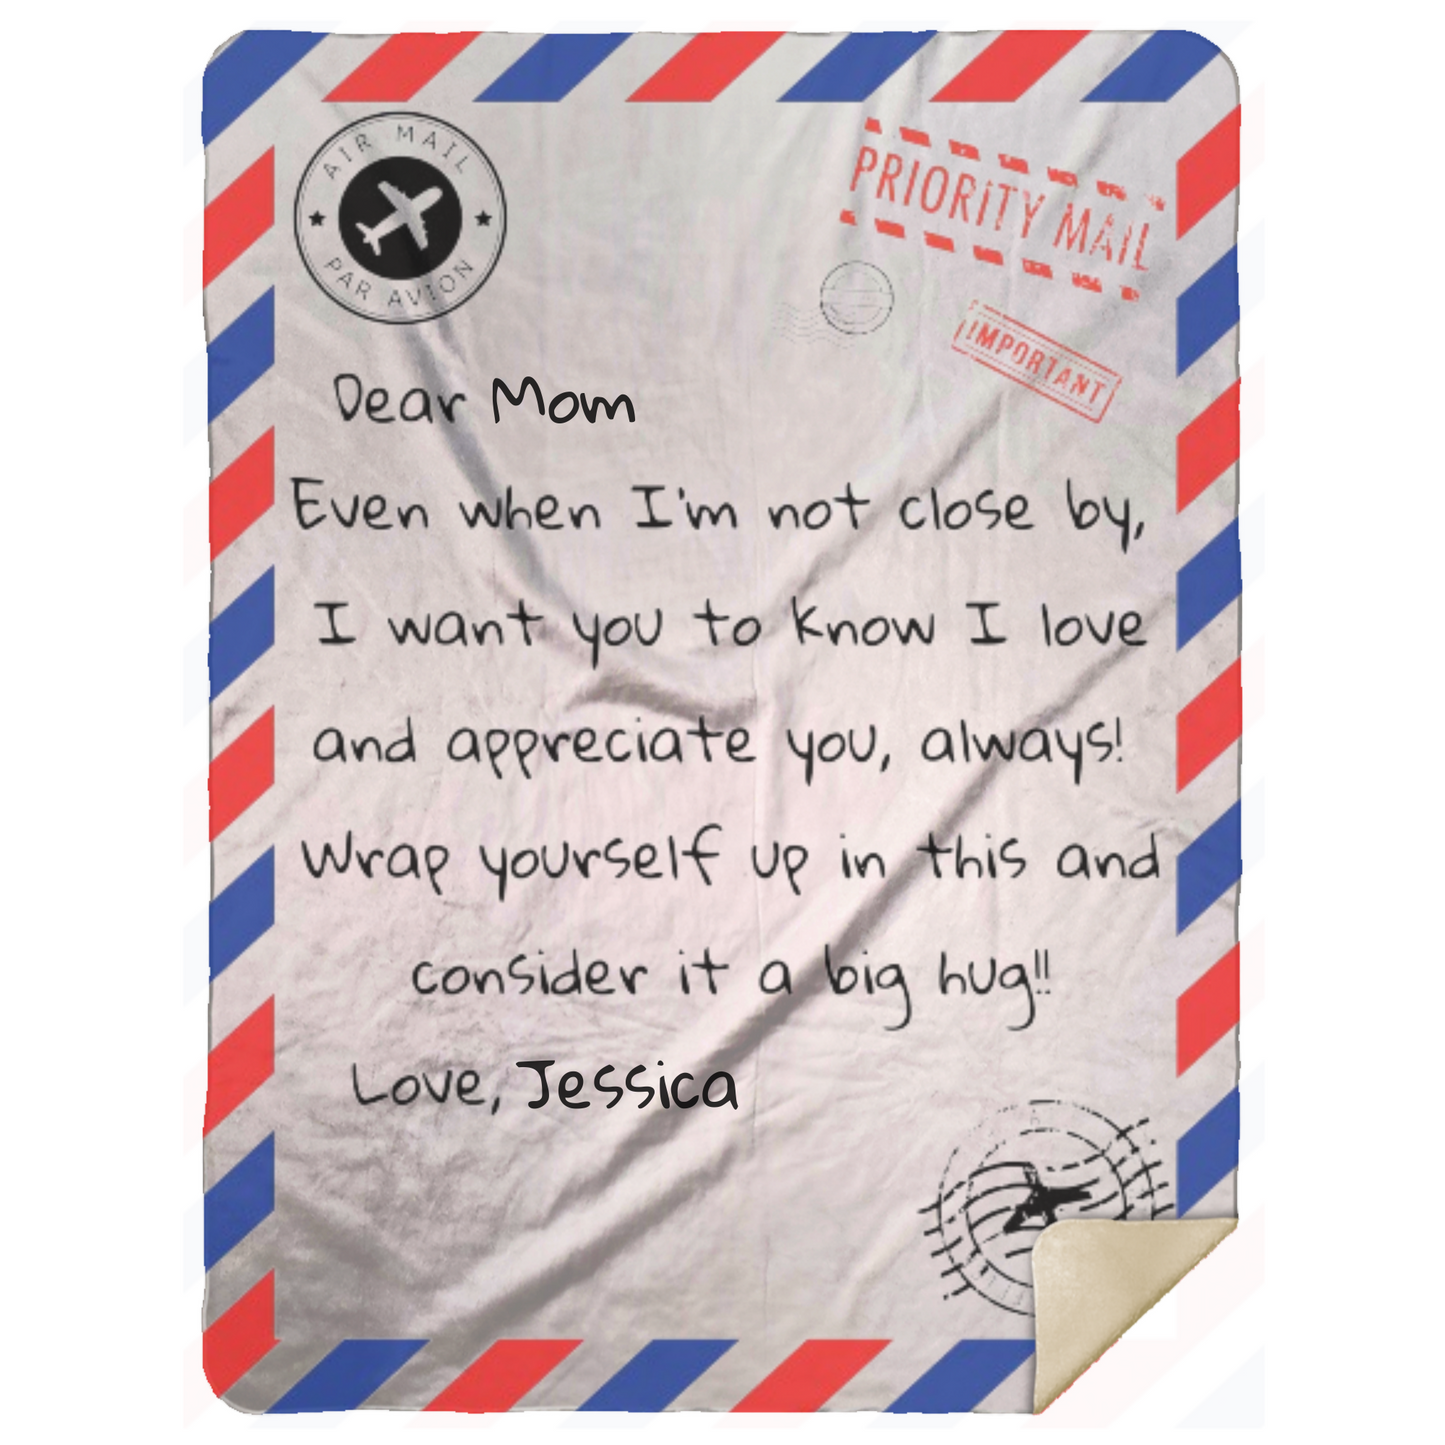 AIR MAIL
PAR AVION
PRIORITY MAIL
IMPORTANT
Dear Mom
Even when I'm not close by,
I want you to know I love
and appreciate you, always!
Wrap yourself up in this and
consider it a big hug!!
Love, Jessica